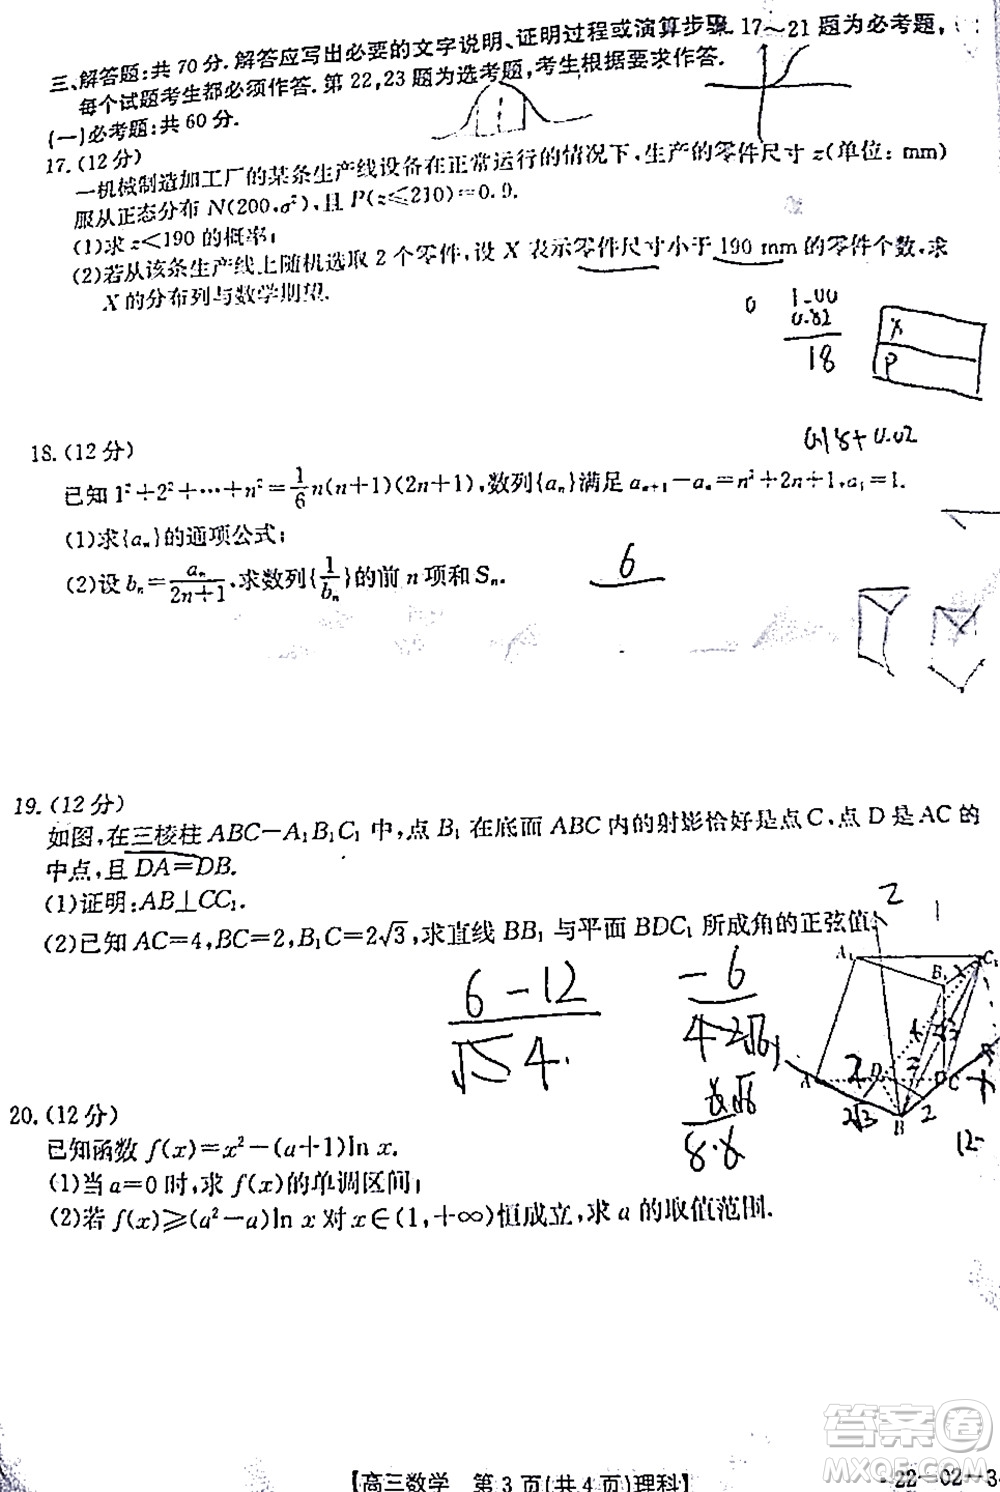 三、解答题:共 70 分.解答应写出必要的文字说明、证明过程或演算步骤.17～21 题为必考题,
每个试题考生都必须作答.第 22,23 题为选考题,考生根据要求作答.
(一)必考题:共 60 分.
17.(12 分)
一机械制造加工厂的某条生产线设备在正常运行的情况下,生产的零件尺寸 z(单位: mm)
服从正态分布 N(200,σ²),且 P(z≤210)=0.9.
(1)求 z<190 的概率;
(2)若从该条生产线上随机选取 2 个零件,设 X 表示零件尺寸小于 190 mm 的零件个数,求
X 的分布列与数学期望.
0
1.00
0.82
18
X
P
0.18+0.02
18.(12 分)
已知 1²+2²+⋯+n²=1/6 n(n+1)(2n+1),数列{aₙ}满足 aₙ₊₁−aₙ=n²+2n+1,a₁=1.
(1)求{aₙ}的通项公式;
(2)设 bₙ=aₙ/(2n+1),求数列{1/bₙ}的前 n 项和 Sₙ.
6
19.(12 分)
如图,在三棱柱 ABC−A₁B₁C₁ 中,点 B₁ 在底面 ABC 内的射影恰好是点 C,点 D 是 AC 的
中点,且 DA=DB.
(1)证明:AB⊥CC₁.
(2)已知 AC=4,BC=2,B₁C=2√3,求直线 BB₁ 与平面 BDC₁ 所成角的正弦值.
2
1
A₁
B₁
C₁
6−12
−6
A
D
C
B
2√3
2
20.(12 分)
已知函数 f(x)=x²−(a+1)ln x.
(1)当 a=0 时,求 f(x)的单调区间;
(2)若 f(x)≥(a²−a)ln x 对 x∈(1,+∞)恒成立,求 a 的取值范围.
8·8
12-
答案圈
MXQE.COM
【高三数学 第 3 页(共 4 页)理科】
·22−02−3